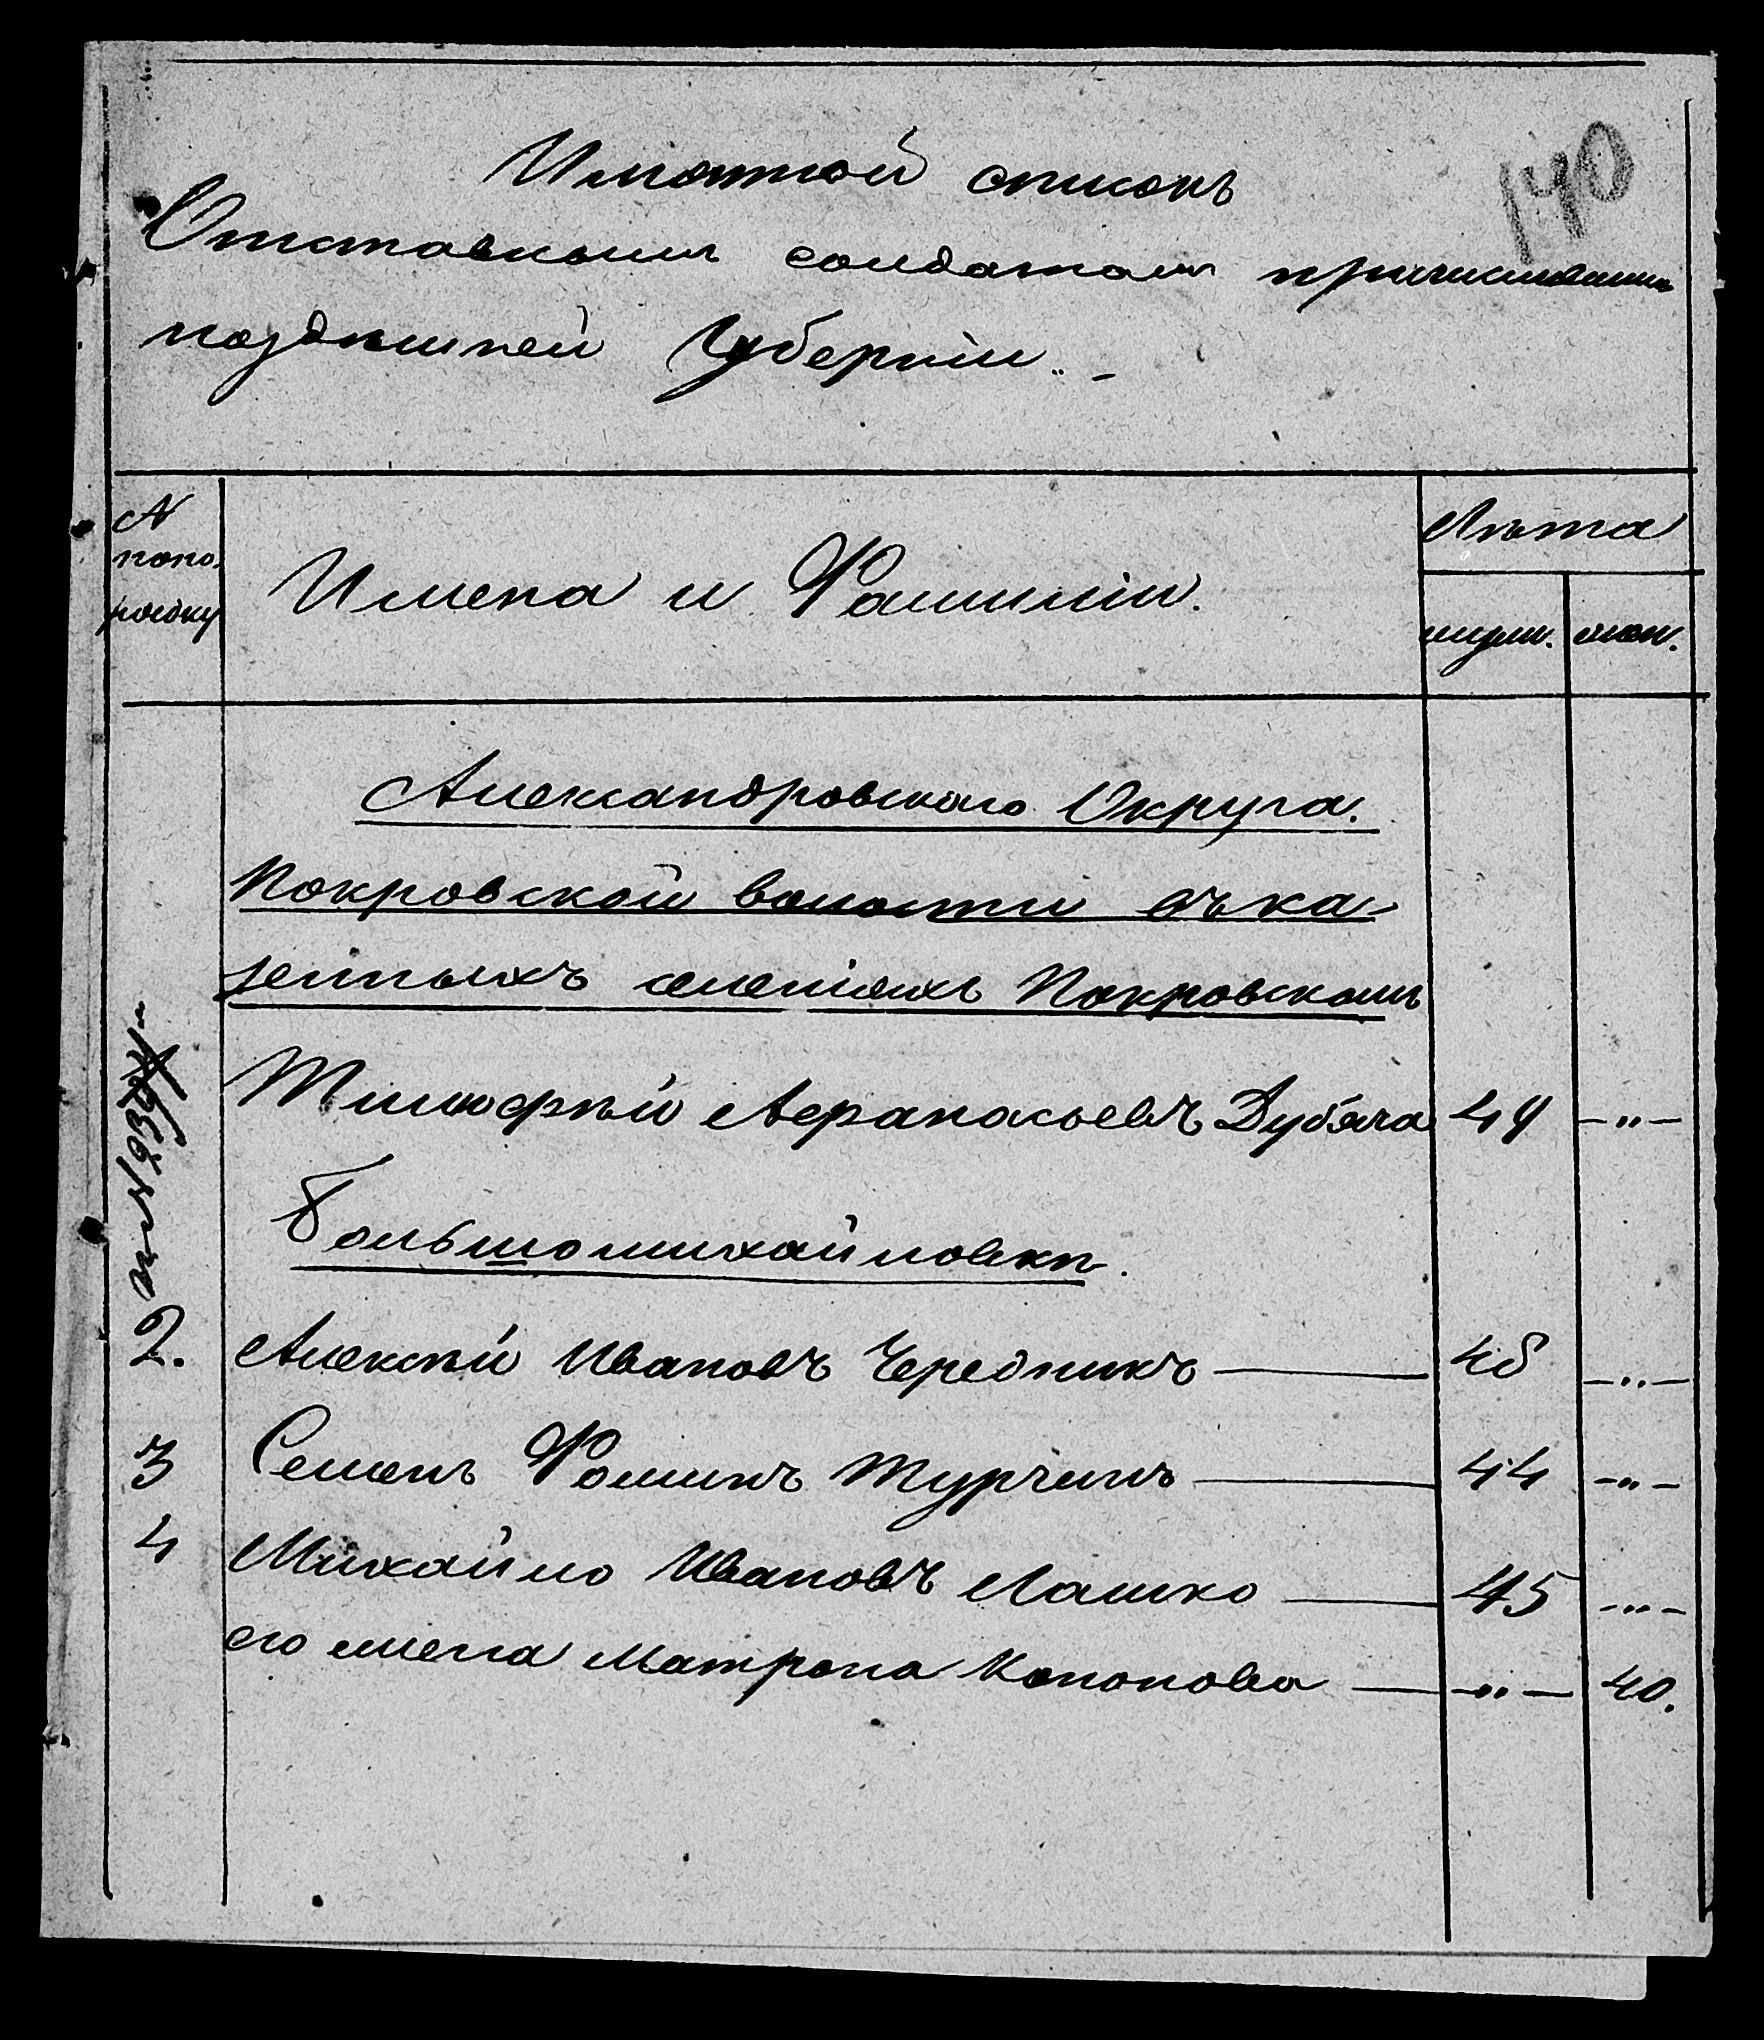 Имянной списокъ
140
Отставнымъ солдатамъ причисленнымъ
поздѣшней Губерніи
N
попо-
рядку
Имена и Фамиліи.
Лѣта
муж.
жен.
Александровскаго Округа.
Покровской волости въ ка-
зенныхъ селеніяхъ Покровскомъ
Тимофѣй Афанасьевъ Дубяга 49 -"-
Большомихайловкѣ.
2. Алексѣй Ивановъ Чередникъ 46 -"-
3 Семенъ Фоминъ Турчинъ 44 -"-
4 Михайло Ивановъ Лашко 45 -"-
его жена Матрона Кононова -"- 40.